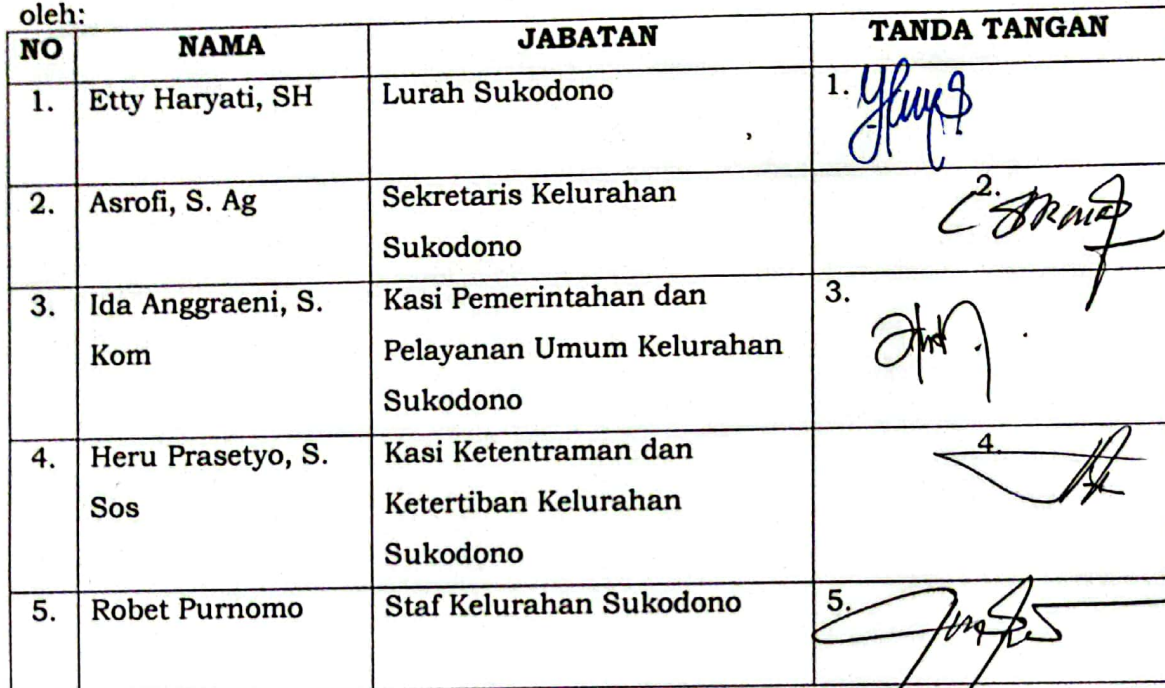 oleh:
NO NAMA JABATAN TANDA TANGAN
1. Etty Haryati, SH Lurah Sukodono 1.
2. Asrofi, S. Ag Sekretaris Kelurahan 2.
Sukodono
3. Ida Anggraeni, S. Kasi Pemerintahan dan 3.
Kom Pelayanan Umum Kelurahan
Sukodono
4. Heru Prasetyo, S. Kasi Ketentraman dan 4.
Sos Ketertiban Kelurahan
Sukodono
5. Robet Purnomo Staf Kelurahan Sukodono 5.